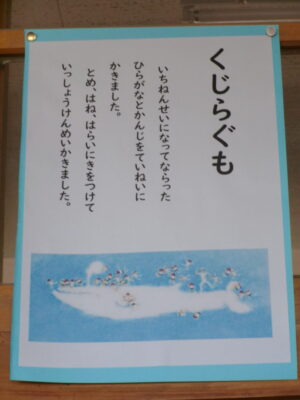 くじらぐも
いちねんせいになってならった
ひらがなとかんじをていねいに
かきました。
とめ、はね、はらいにきをつけて
いっしょうけんめいかきました。